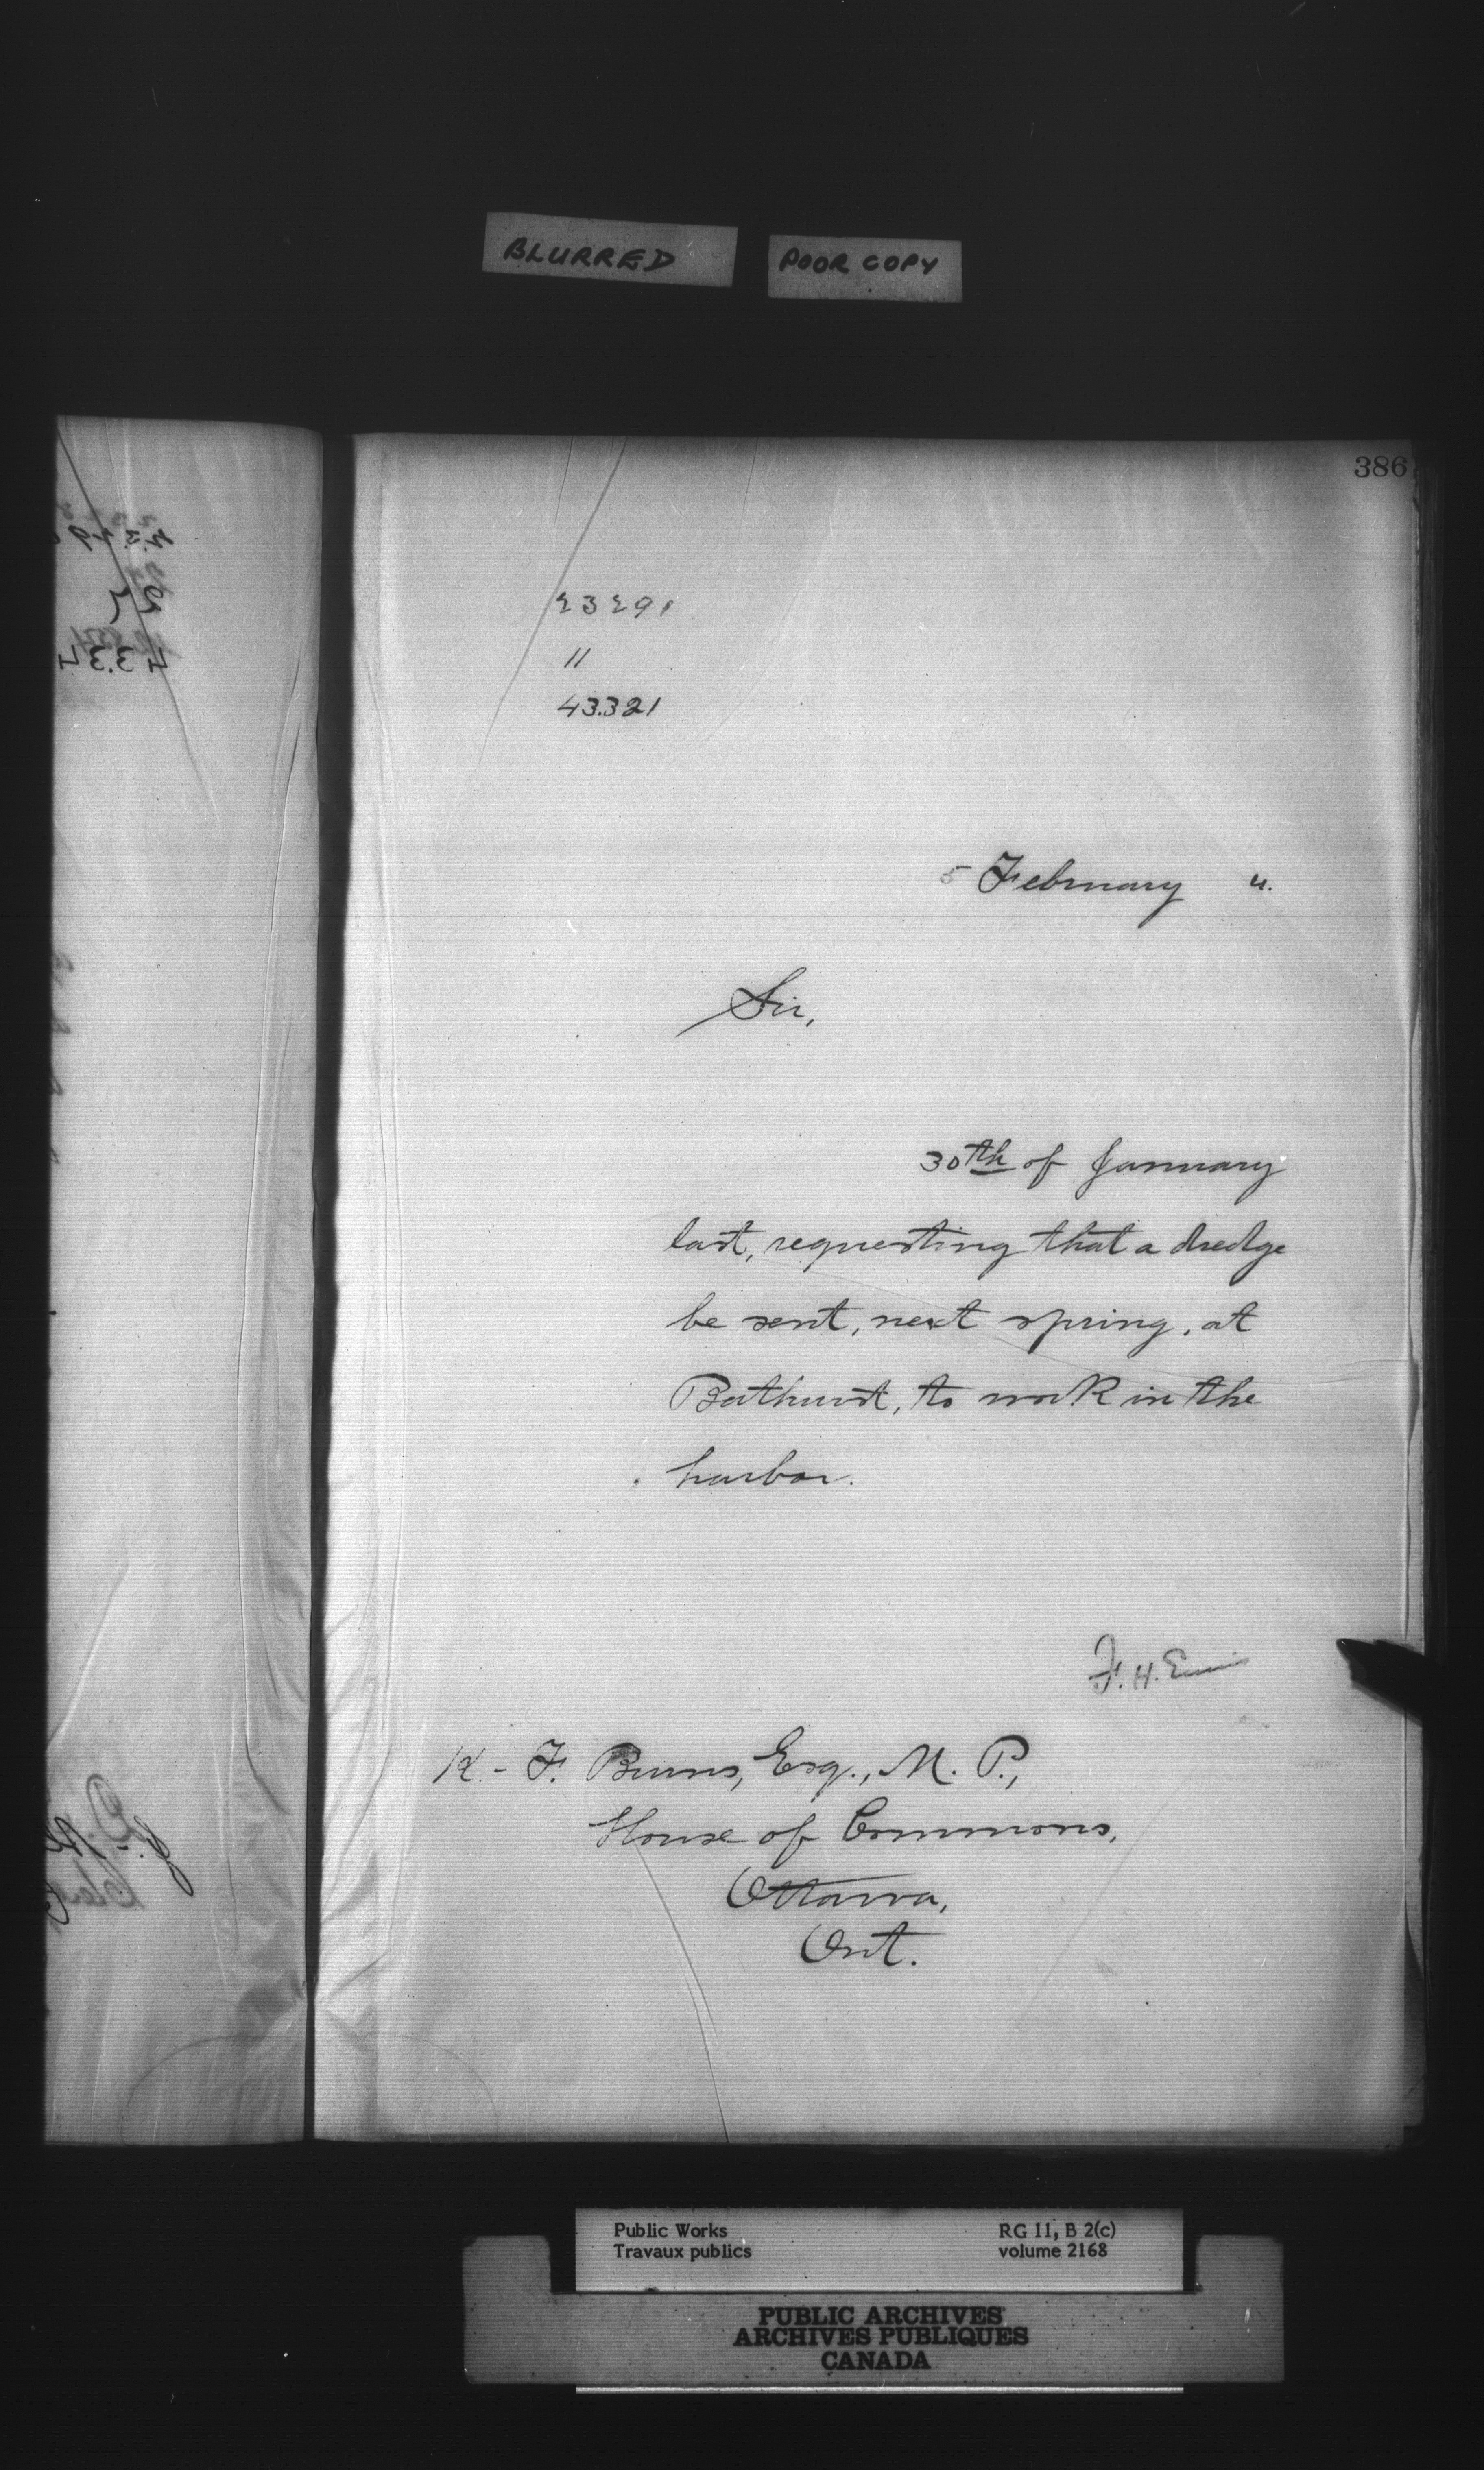 BLURRED
POOR COPY
386
23291
"
43.321
5 February 4.
Sir,
30th of January
last, requesting that a dredge
be sent, next spring, at
Bathurst, to work in the
harbor.
F. H. Ennis
K. - F. Burns, Esq., M. P.,
House of Commons,
Ottawa,
Ont.
Public Works
Travaux publics
RG 11, B 2(c)
volume 2168
PUBLIC ARCHIVES
ARCHIVES PUBLIQUES
CANADA